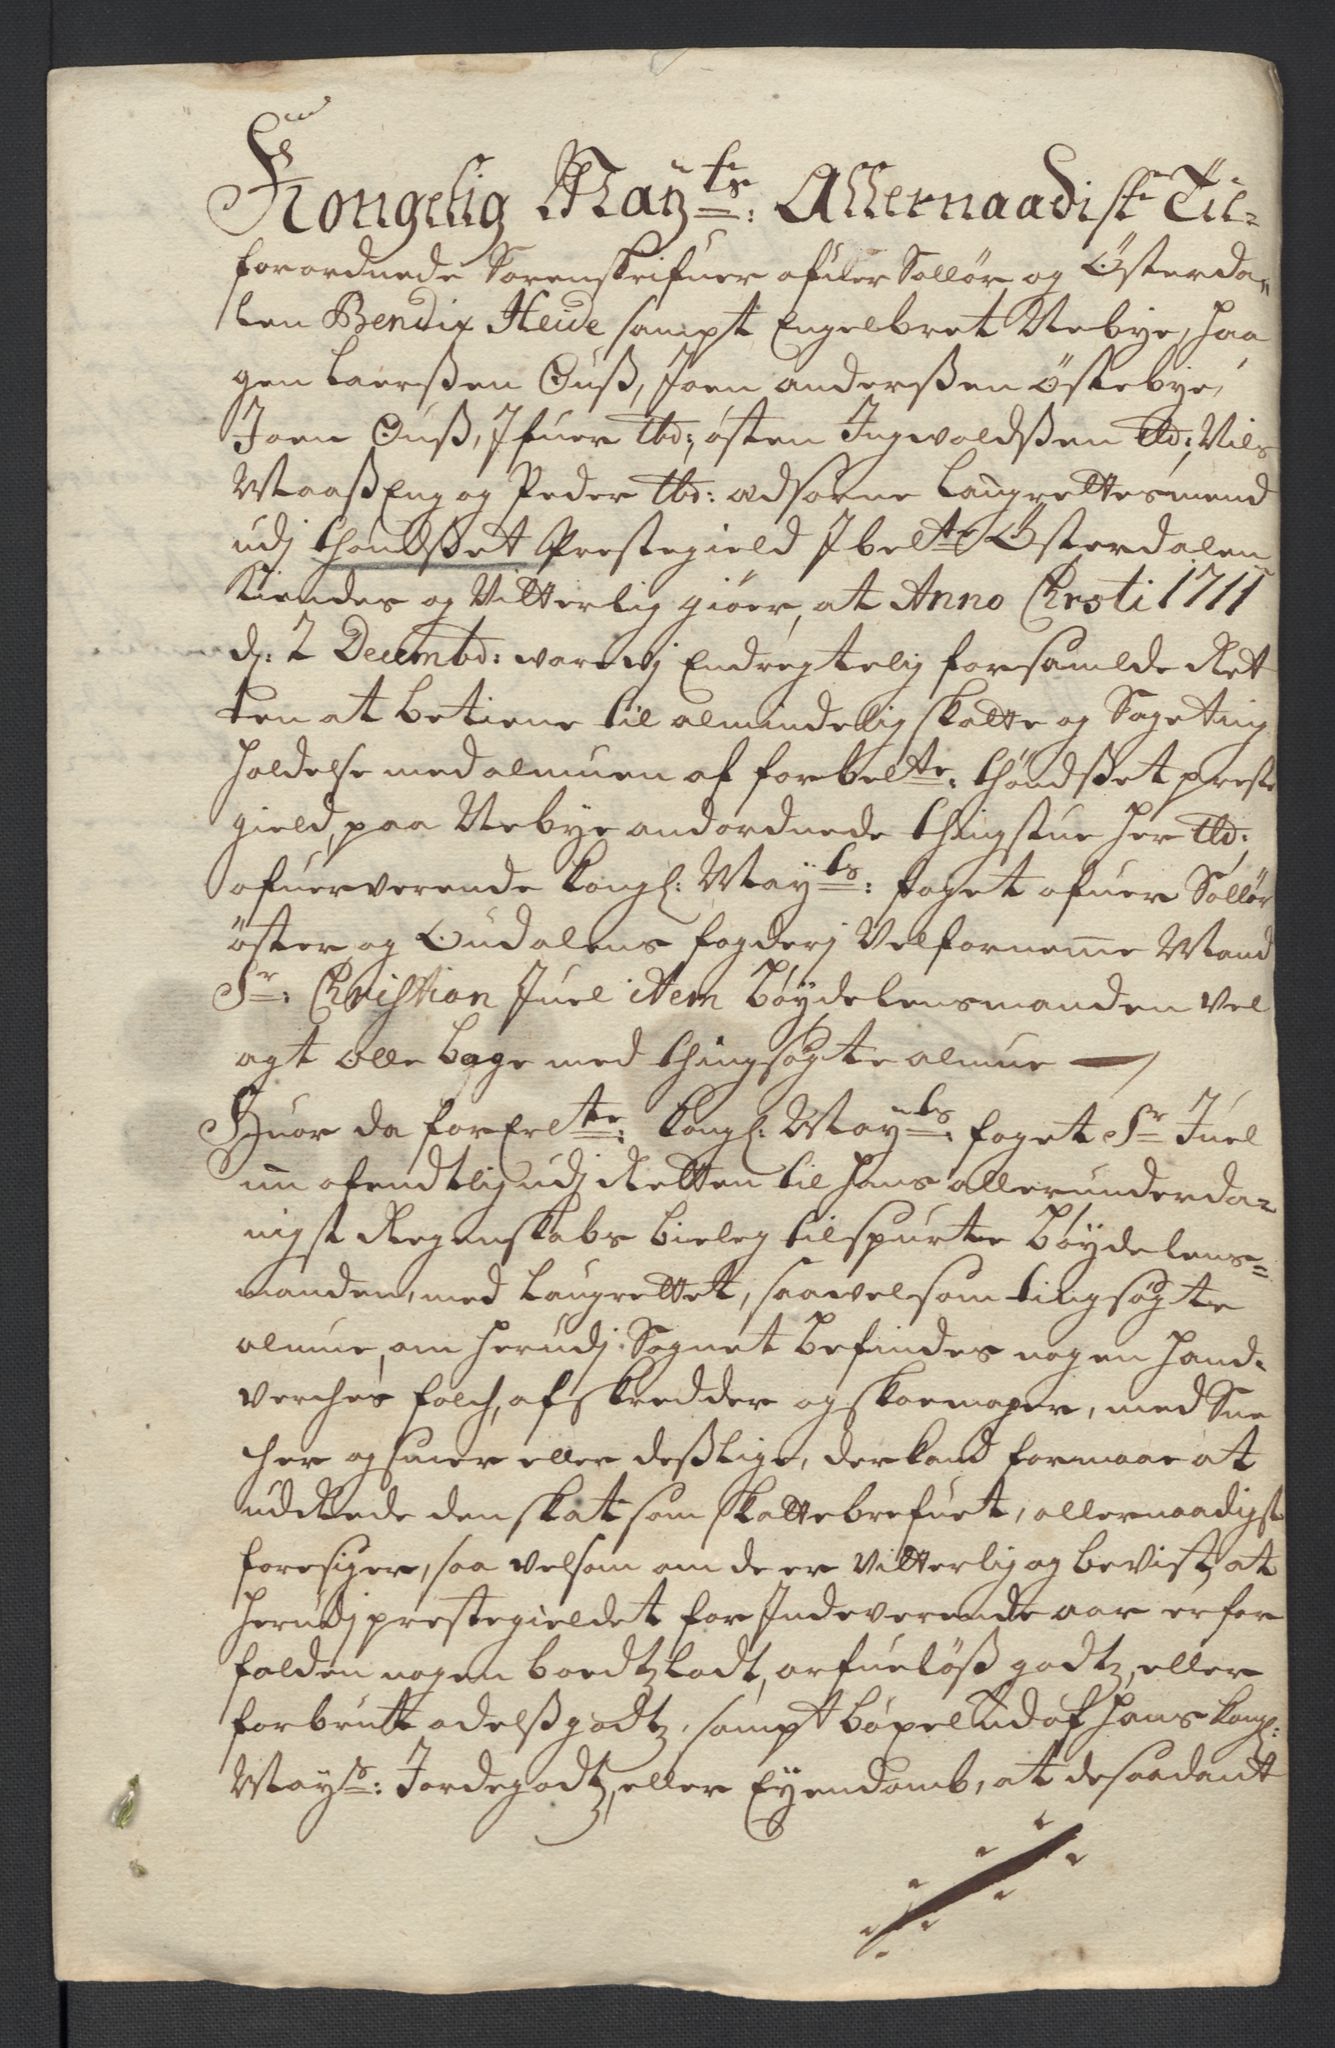 Kongelig Mayts: Allernaadiste Til-
forordnede Sorenskrifuer ofuer Sollør og Østerda-
len Bendix Heide sampt Engelbret Nebye, Haa
gen Laersßen Øuß, Joen anderßen østebye,
Joen Øuß, Ifuer ibd: østen Ingvoldßen ibd: Nils
Maaß Eng og Peder ibd: Edsorne Laugrettesmend
udj Thøndßet Prestegield I belte Østerdalen
Kiendes og Vitterlig giøer, at Anno Christi 1711
d: 2 Decembd: vare vj Endregtelig forsamlde Ret
ten at betiene til almindelig skatte og Sageting
holdelse med almuen af forbelte: Thøndßet preste
gield, paa Nebye andordnede thingstue her ibd:
ofuerverende Kongl: Mayts: foget ofuer Sollør
øster og Oudalens fogderj Velforneme Mand
Sr: Christian Juel item bøydelensmanden vel
agt Olle bage med thingsøgte almue
Huor da forErlte: Kongl: Mayts: foget Sr Juel
nu ofendtlig udj Retten til hans allerunderda-
nigst Regenskabs bieleg tilspurte bøydelens-
manden, med Laugrettet, saavelsom tingsøgte
almue, om herudj Sognet befindes nogen hand-
verches folch, af skredder og skoemager, med Sne
cher og suier eller deßlige, der kand formaae at
udReede den skat som skattebrefuet, allernaadigst
foresiger, saa velsom om de er vitterlig og bevist, at
herudj prestegieldet for Indeverende aar er for
falden nogen boedtzlodt, arfueløß godtz, eller
forbrutt odelß godtz, sampt bøxel ud af hans Kongl:
Mayts: Jordegodtz, eller Eyendomb, at desaadant